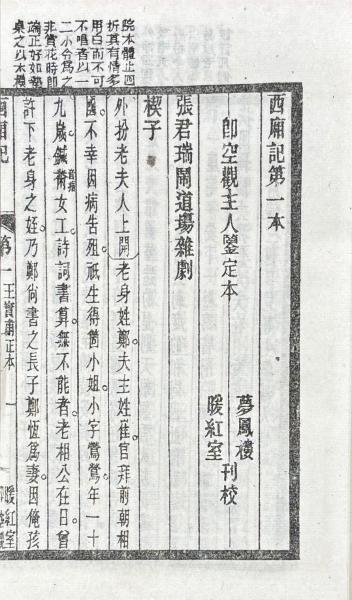 院本體止四
折其有情多
用白而不可
不唱者以一
二小令爲之
非賞花時即
端正好如墊
桌之以木楔
西廂記第一本
即空觀主人鑒定本
夢鳳樓
暖紅室
刊校
張君瑞鬧道場雜劇
楔子
外扮老夫人上開老身姓鄭夫主姓崔官拜前朝相
國。不幸因病告殂。祇生得箇小姐。小字鶯鶯。年一十
九歲。鍼黹女工。詩詞書算。無不能者。老相公在日。曾
許下老身之姪。乃鄭尚書之長子鄭恆爲妻。因俺孩
西廂記
第一
王實甫正本
一
暖紅室